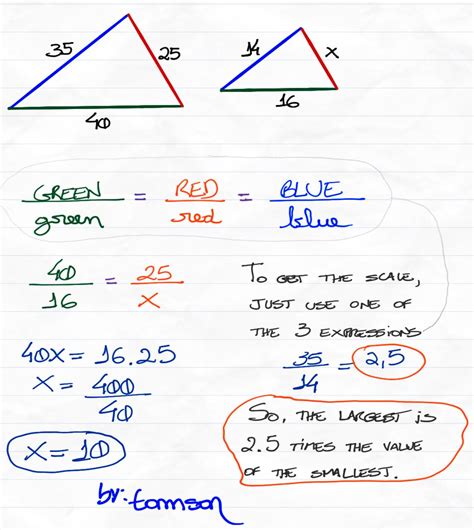 35
25
40
14
x
16
GREEN/green = RED/red = BLUE/blue
40/16 = 25/x
40x = 16.25
x = 400/40
x = 10
To get the scale,
just use one of
the 3 expressions
35/14 = 2,5
So, the largest is
2.5 times the value
of the smallest.
by: tomnson